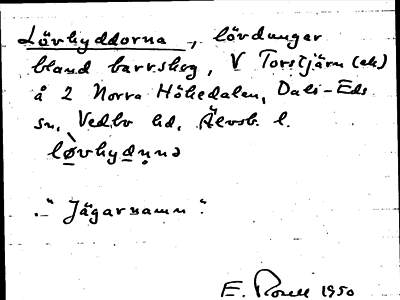 Lövhyddorna, lövdungar
bland barrskog, V Torstjärn (ek)
å 2 Norra Hökedalen, Dals-Eds
sn, Vedbo hd, Älvsb. l.
"Jägarnamn".
E. 1950